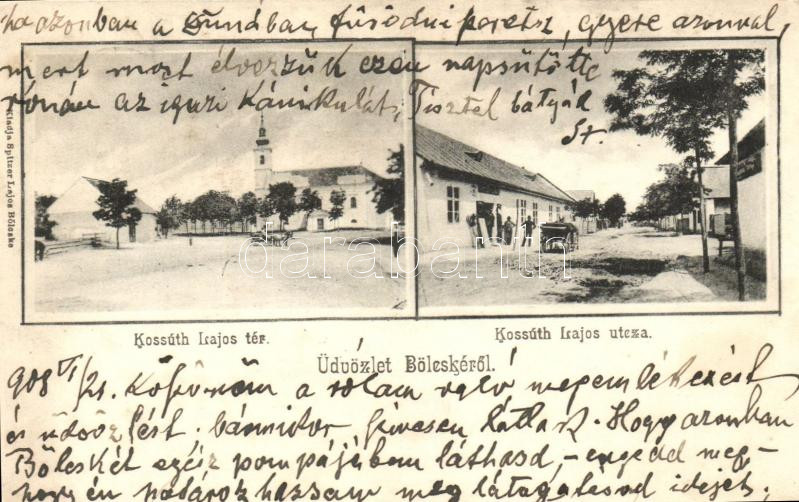 ha azonban a Dunában fürödni parctsz, gyere azonnal,
mert most élvezzük ezen napsütötte
rónán az igazi Kánikulát, Tisztel bátyád
St.
Kiadja Spitzer Lajos Bölcske
darabanth
Kossúth Lajos tér.
Kossúth Lajos utcza.
Üdvözlet Bölcskéről.
908 VI/21. Köszönöm a rólam való megemlékezést
és üdvözlést. bármikor szivesen látlak. Hogy azonban
Bölcskét egész pompájában láthasd, – engedd meg-
hogy én határozhassam meg látogatásod idejét.